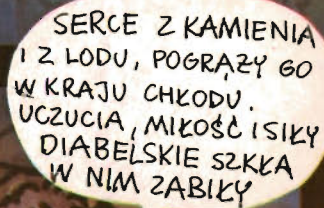 SERCE Z KAMIENIA
I Z LODU, POGRĄŻY GO
W KRAJU CHŁODU.
UCZUCIA, MIŁOŚĆ I SIŁY
DIABELSKIE SZKŁA
W NIM ZABIŁY